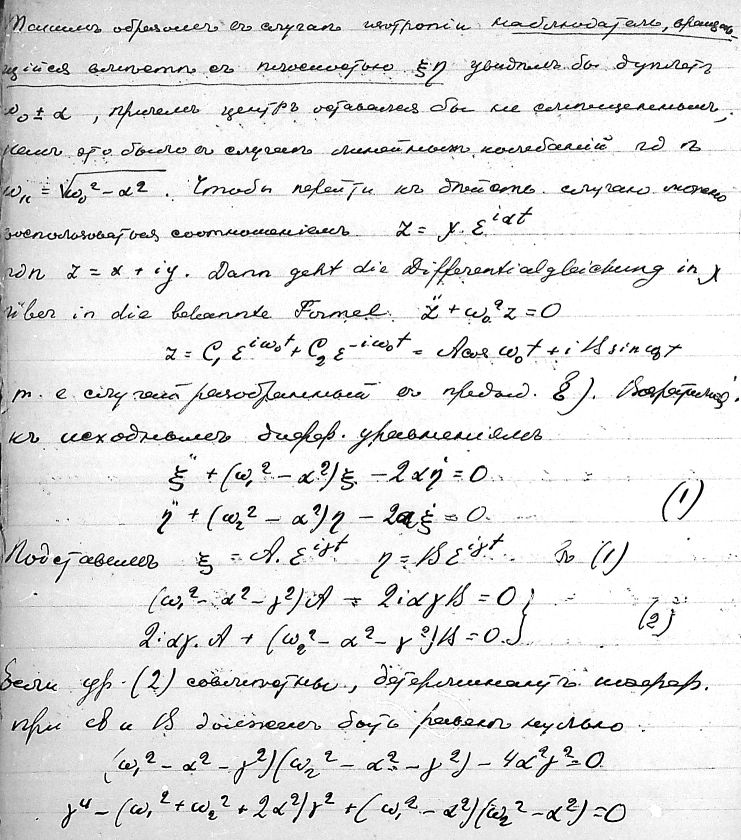 Такимъ образомъ въ случаѣ изотропіи наблюдатель, вращаю-
щійся вмѣстѣ съ плоскостью ξη увидѣлъ бы дуплетъ
ω₀ ± α, причемъ центръ оставался бы не смѣщеннымъ,
какъ это было въ случаѣ линейныхъ колебаній гдѣ
ω_n = √(ω₀² − α²). Чтобы перейти къ случаю можно
воспользоваться соотношеніемъ z = χ. ε^{iαt}
гдѣ z = x + iy. Dann geht die Differentialgleichung in χ
über in die bekannte Formel z̈ + ω₀² z = 0
z = C₁ ε^{iω₀t} + C₂ ε^{−iω₀t} = A cos ω₀t + i B sin ω₀t
т. е случай разобранный въ предыд. §). Возвратимся
къ исходнымъ дифер. уравненіямъ
ξ̈ + (ω₁² − α²)ξ − 2αη̇ = 0
η̈ + (ω₂² − α²)η − 2αξ̇ = 0 (1)
Подставимъ ξ = A. ε^{iγt} η = B ε^{iγt} въ (1)
(ω₁² − α² − γ²)A − 2iαγB = 0
2iαγ. A + (ω₂² − α² − γ²)B = 0 } (2)
Если ур. (2) совмѣстны, детерминантъ коэфф.
при A и B долженъ быть равенъ нулю.
(ω₁² − α² − γ²)(ω₂² − α² − γ²) − 4α²γ² = 0
γ⁴ − (ω₁² + ω₂² + 2α²)γ² + (ω₁² − α²)(ω₂² − α²) = 0